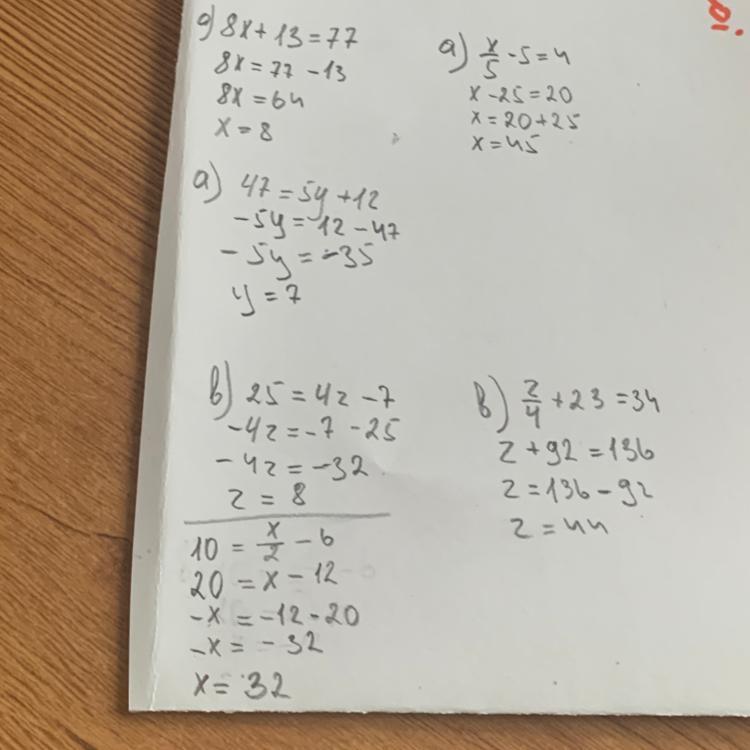 g) 8x + 13 = 77
8x = 77 - 13
8x = 64
x = 8
a) x/5 - 5 = 4
x - 25 = 20
x = 20 + 25
x = 45
a) 47 = 5y + 12
-5y = 12 - 47
-5y = -35
y = 7
b) 25 = 4z - 7
-4z = -7 - 25
-4z = -32
z = 8
10 = x/2 - 6
20 = x - 12
-x = -12 - 20
-x = -32
x = 32
b) z/4 + 23 = 34
z + 92 = 136
z = 136 - 92
z = 44